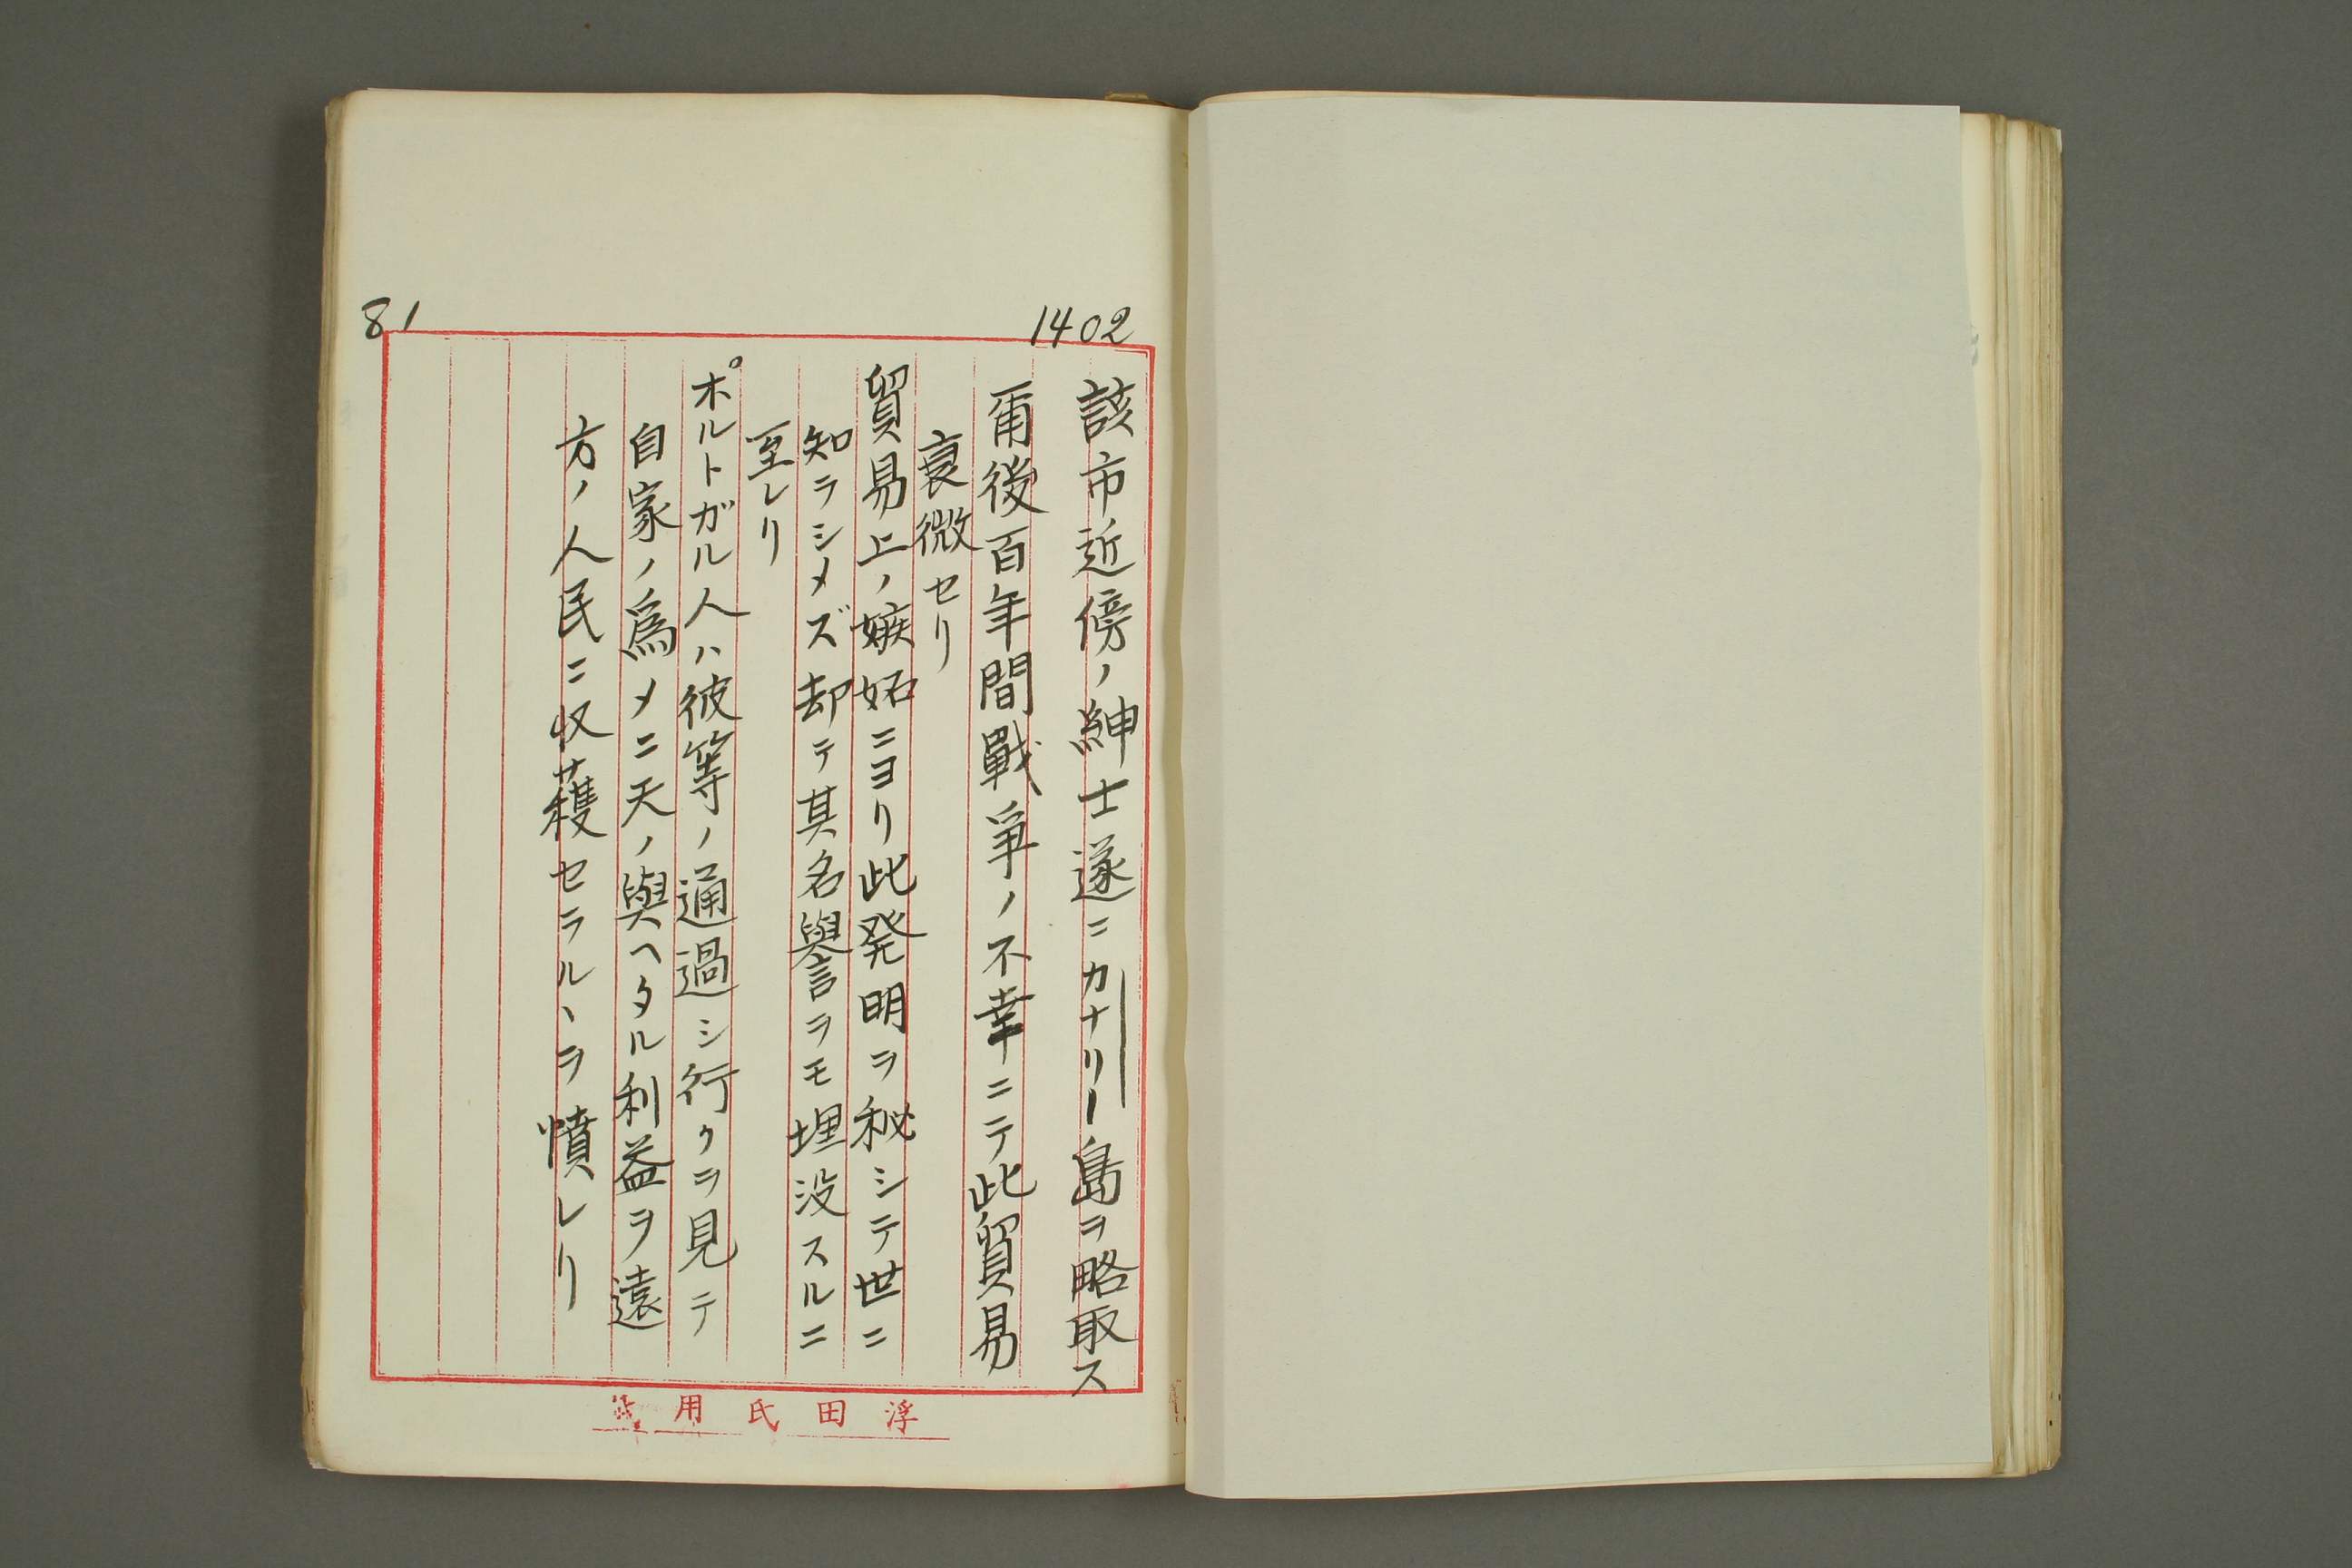 1402
該市近傍ノ紳士遂ニカナリー島ヲ略取ス
爾後百年間戰爭ノ不幸ニテ此貿易
衰微セリ
貿易上ノ嫉妬ニヨリ此発明ヲ秘シテ世ニ
知ラシメズ却テ其名譽ヲモ埋没スルニ
至レリ
ポルトガル人ハ彼等ノ通過シ行クヲ見テ
自家ノ為メニ天ノ與ヘタル利益ヲ遠
方ノ人民ニ収穫セラルヽヲ憤レリ
81
浮田氏用